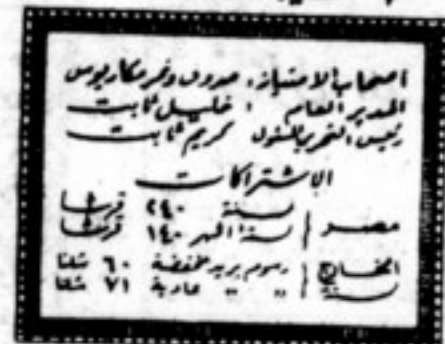 اصحاب الامتياز: صروف ونمر ومكاريوس
المدير العام : خليل ثابت
رئيس التحرير المسئول كريم ثابت
الاشتراكات
مصر
سنة ٢٤٠ قرشا
ستة اشهر ١٤٠ قرشا
الخارج
سنة
رسوم بريد مخفضة ٦٠ شلنا
" " عادية ٧١ شلنا